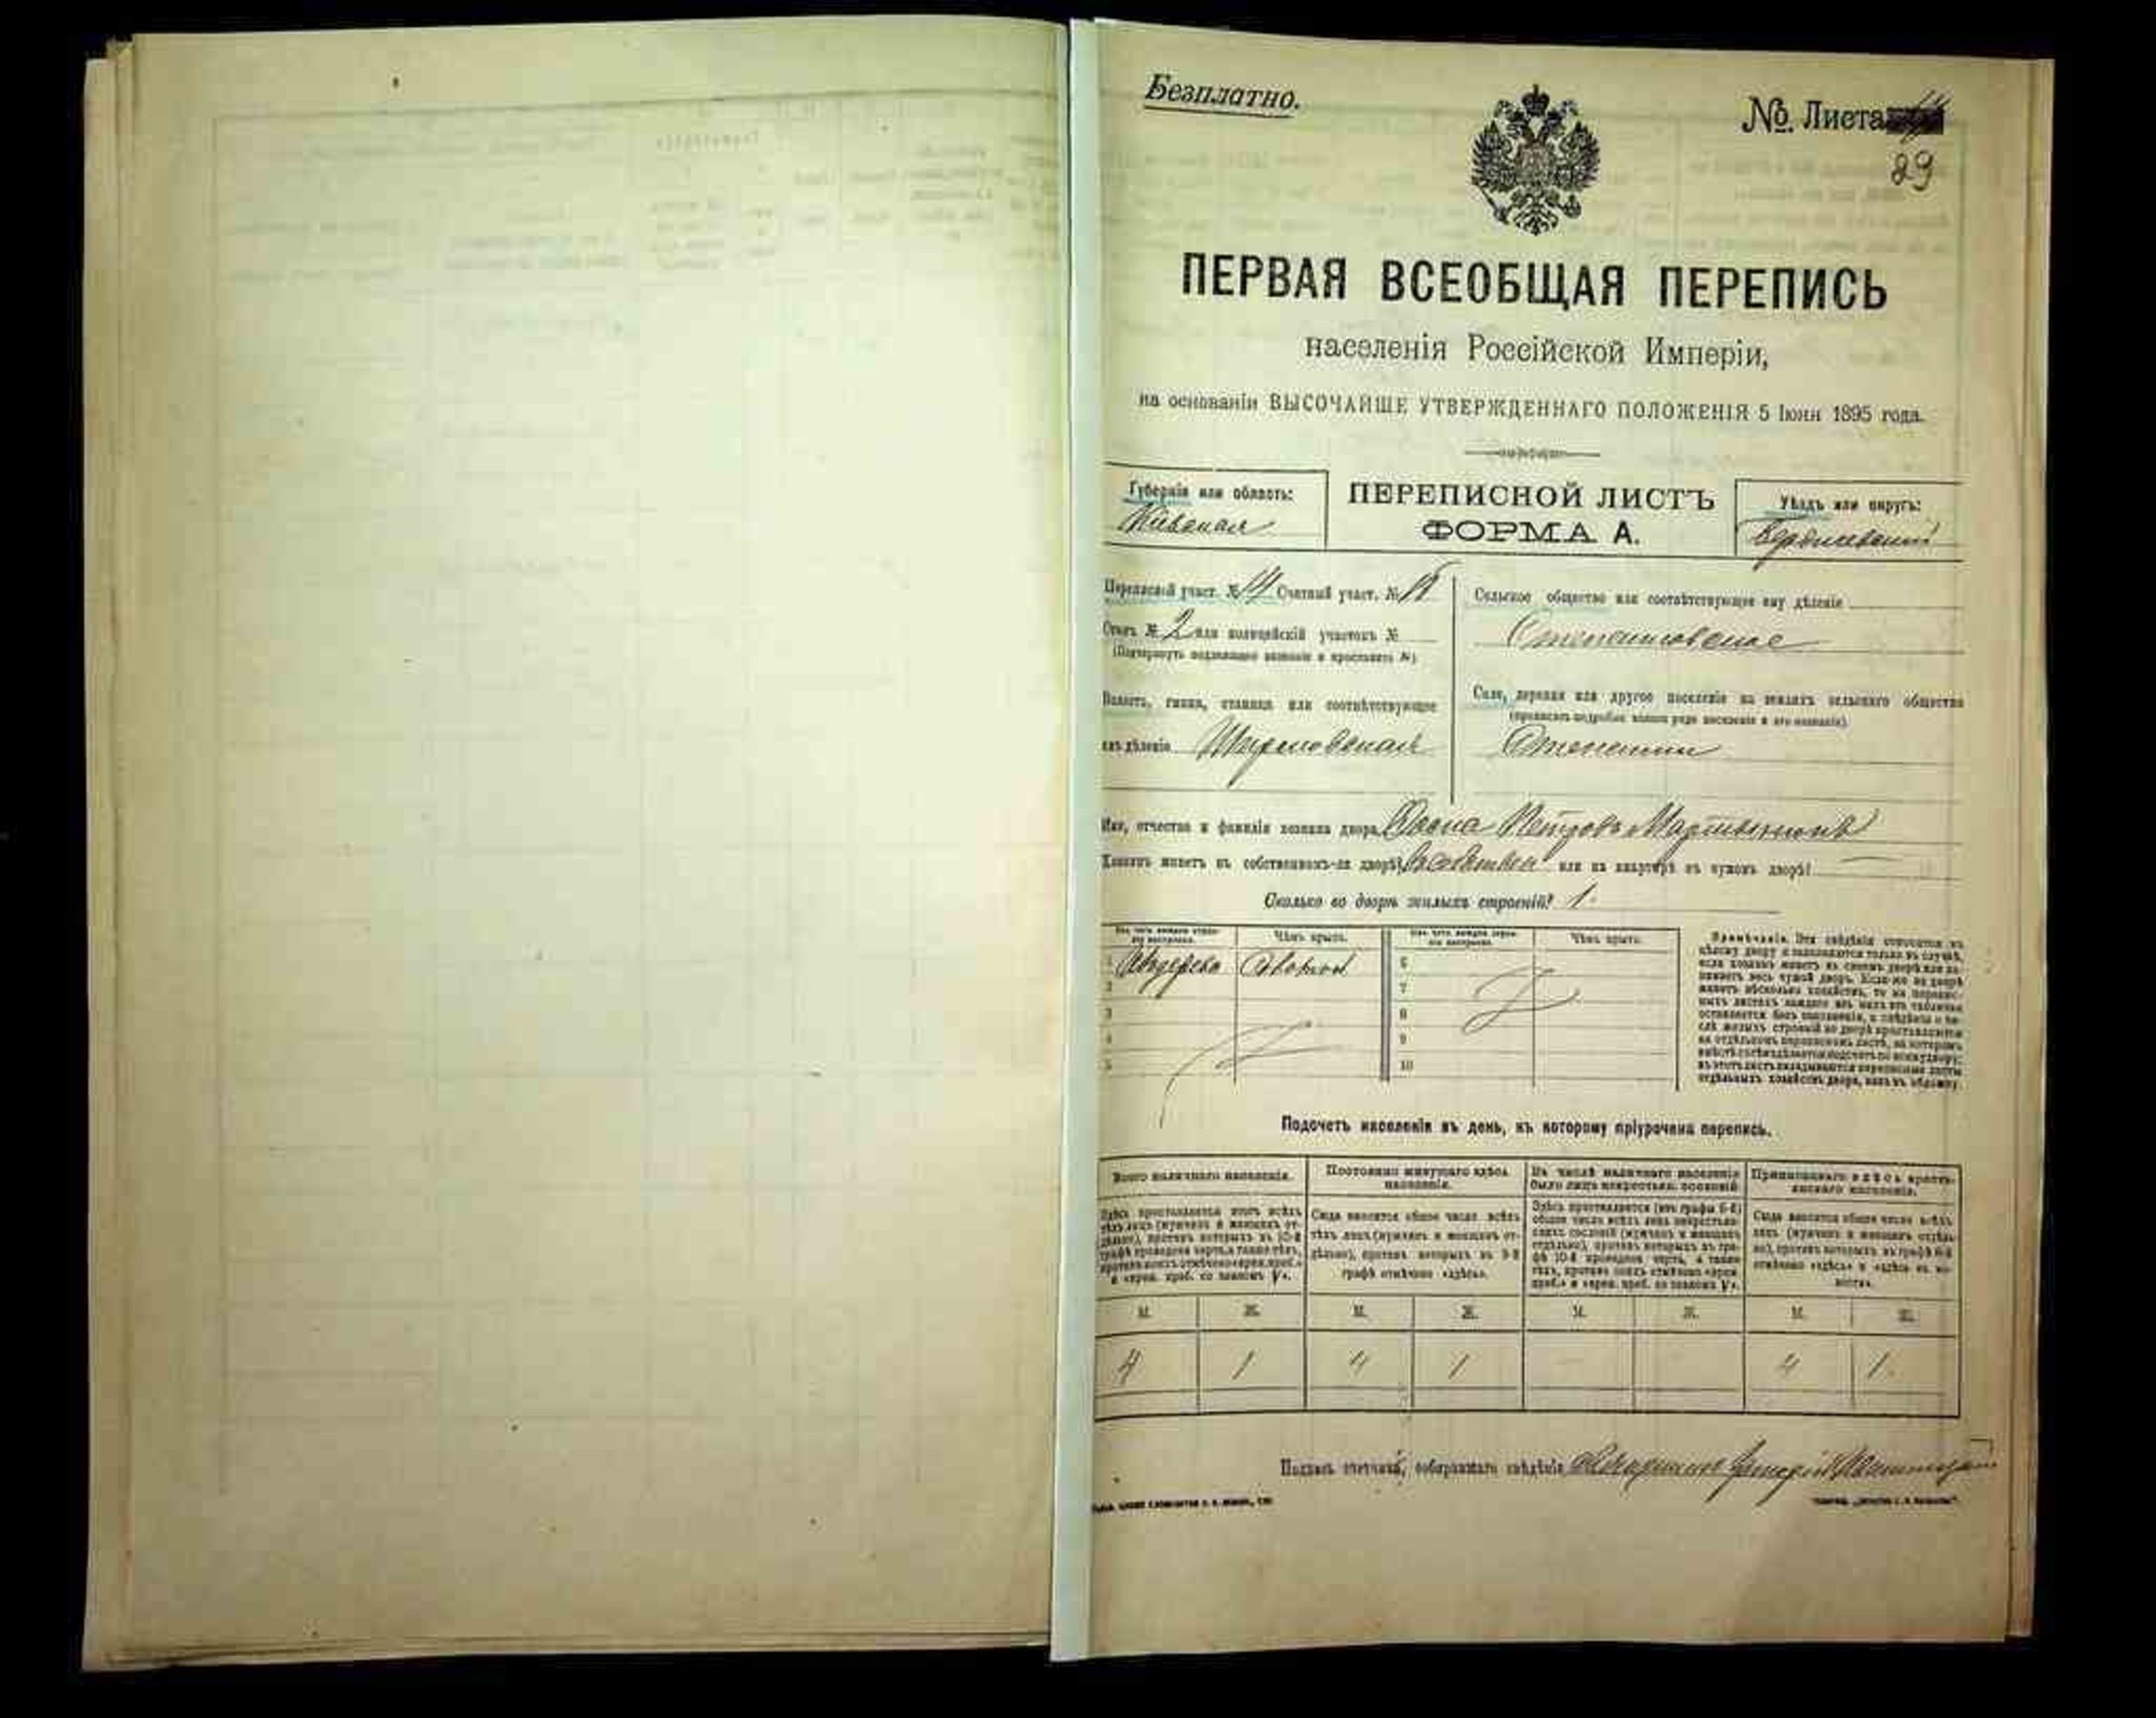 Безплатно.
№. Листа
29
ПЕРВАЯ ВСЕОБЩАЯ ПЕРЕПИСЬ
населенія Россійской Имперіи,
на основаніи ВЫСОЧАЙШЕ УТВЕРЖДЕННАГО ПОЛОЖЕНІЯ 5 Іюня 1895 года.
Губернія или область:
Кіевская
ПЕРЕПИСНОЙ ЛИСТЪ
ФОРМА А.
Уѣздъ или округъ:
Бердичевскій
Переписной участ. № 14 Счетный участ. №
Станъ № 2 или полицейскій участокъ №
(Подчеркнуть подлежащее названіе и проставить №)
Волость, гмина, станица или соотвѣтствующее
имъ дѣленіе
Сельское общество или соотвѣтствующее ему дѣленіе
Село, деревня или другое поселеніе на земляхъ сельскаго общества
(прописать подробно какого рода поселеніе и его названіе).
Имя, отчество и фамилія хозяина двора Петровъ
Хозяинъ живетъ въ собственномъ-ли дворѣ? или на квартирѣ въ чужомъ дворѣ?
Сколько во дворѣ жилыхъ строеній? 1.
Изъ чего каждое строеніе построено.
Чѣмъ крыто.
Изъ чего каждое строеніе построено.
Чѣмъ крыто.
1 Издерева Соломой
2
3
4
5
6
7
8
9
10
Примѣчаніе. Эти свѣдѣнія относятся къ
цѣлому двору и заполняются только въ случаѣ,
если хозяинъ живетъ въ своемъ дворѣ или за-
нимаетъ весь чужой дворъ. Если-же во дворѣ
живетъ нѣсколько хозяйствъ, то на перепис-
ныхъ листахъ каждаго изъ нихъ эта табличка
оставляется безъ заполненія, а свѣдѣнія о чи-
слѣ жилыхъ строеній во дворѣ проставляются
на отдѣльномъ переписномъ листѣ, на которомъ
вмѣстѣ съ тѣмъ дѣлается подсчетъ по всему двору;
въ этотъ листъ вкладываются переписные листы
отдѣльныхъ хозяйствъ двора, какъ въ обложку.
Подсчетъ населенія въ день, къ которому пріурочена перепись.
Всего наличнаго населенія.
Здѣсь проставляется итогъ всѣхъ
тѣхъ лицъ (мужчинъ и женщинъ от-
дѣльно), противъ которыхъ въ 10-й
графѣ проведена черта, а также тѣхъ,
противъ коихъ отмѣчено «врем. преб.»
и «врем. преб. со знакомъ V».
Постоянно живущаго здѣсь
населенія.
Сюда вносится общее число всѣхъ
тѣхъ лицъ (мужчинъ и женщинъ от-
дѣльно), противъ которыхъ въ 9-й
графѣ отмѣчено «здѣсь».
Въ числѣ наличнаго населенія
было лицъ некрестьян. сословій.
Здѣсь проставляется (изъ графы 6-й)
общее число всѣхъ лицъ некрестьян-
скихъ сословій (мужчинъ и женщинъ
отдѣльно), противъ которыхъ въ гра-
фѣ 10-й проведена черта, а также
тѣхъ, противъ коихъ отмѣчено «врем.
преб.» и «врем. преб. со знакомъ V».
Приписаннаго здѣсь кресть-
янскаго населенія.
Сюда вносится общее число всѣхъ
лицъ (мужчинъ и женщинъ отдѣль-
но), противъ которыхъ въ графѣ 8-й
отмѣчено «здѣсь» и «здѣсь въ во-
лости».
М. Ж. М. Ж. М. Ж. М. Ж.
4 1 4 1 4 1.
Подпись счетчика, собиравшаго свѣдѣнія Григорій